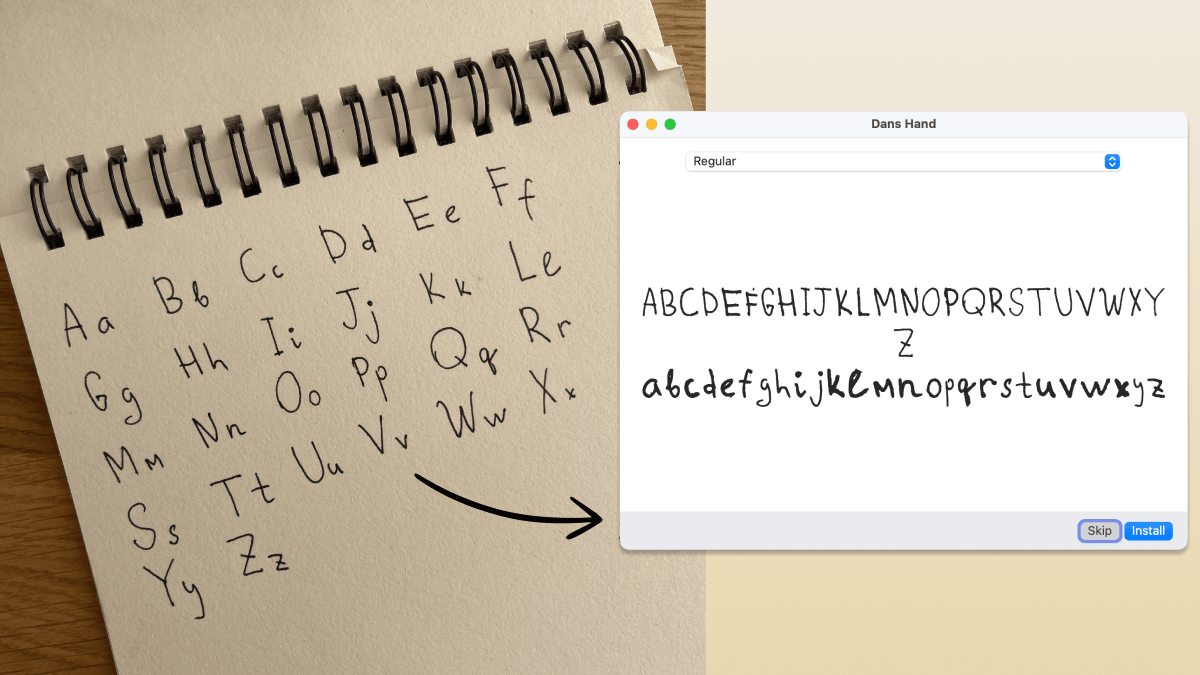 Aa Bb Cc Dd Ee Ff
Gg Hh Ii Jj Kk Ll
Mm Nn Oo Pp Qq Rr
Ss Tt Uu Vv Ww Xx
Yy Zz
Dans Hand
Regular
ABCDEFGHIJKLMNOPQRSTUVWXY
Z
abcdefghijklmnopqrstuvwxyz
Skip Install